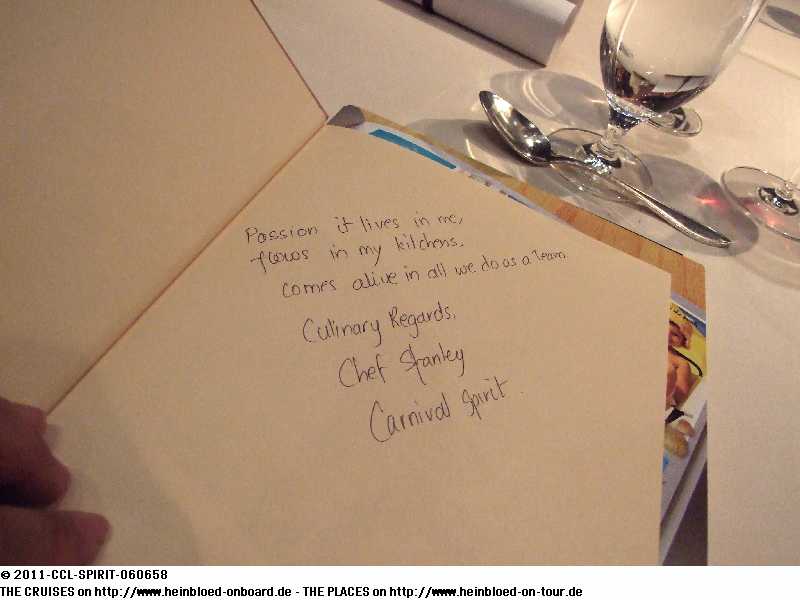 Passion it lives in me,
flows in my kitchens.
comes alive in all we do as a Team
Culinary Regards,
Chef Stanley
Carnival Spirit.
© 2011-CCL-SPIRIT-060658
THE CRUISES on http://www.heinbloed-onboard.de - THE PLACES on http://www.heinbloed-on-tour.de